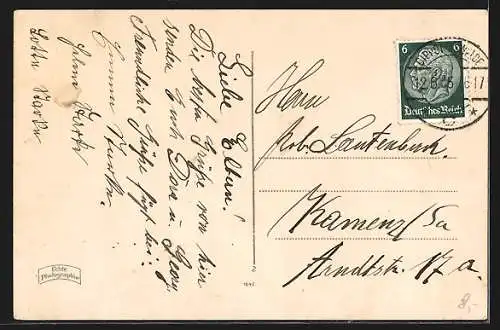 Liebe Eltern!
Die besten Grüße von hier
senden Euch Dora u. Georg.
Freundliche Grüße fügt bei:
Emma
Lotte
Herrn
Rob. Lautenbach.
Kamenz/Sa
Arndtstr. 17a.
6 6
Deutsches Reich
17
Echte
Photographie
1645
8,-